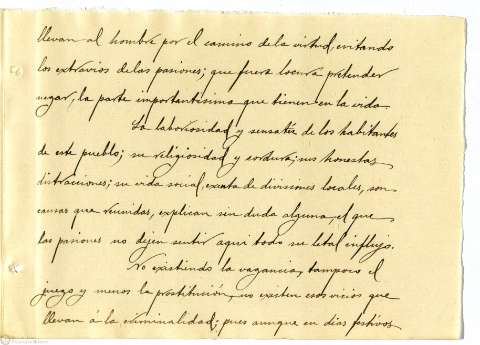 llevan al hombre por el camino de la virtud, evitando
los extravios de las pasiones; que fuera locura pretender
negar, la parte importantisima que tienen en la vida.
La laboriosidad y sensatéz de los habitantes
de este pueblo; su religiosidad y cordura; sus honestas
distracciones; su vida social, exenta de divisiones locales, son
causas que reunidas, explican sin duda alguna, el que
las pasiones no dejen sentir aqui todo su letal influjo.
No existiendo la vagancia, tampoco el
juego y menos la prostitución, no existen esos vicios que
llevan a la criminalidad; pues aunque en dias festivos